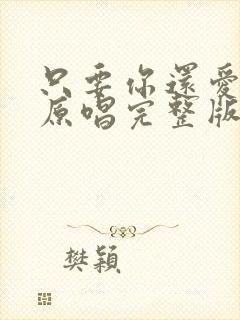 只要你還愛
原唱完整版
樊穎